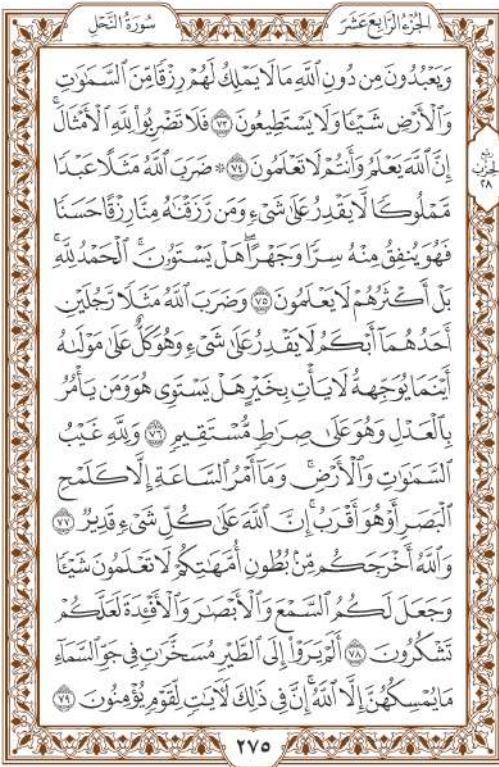 الجُزْءُ الرَّابِعَ عَشَرَ
سُورَةُ النَّحْلِ
وَيَعْبُدُونَ مِن دُونِ ٱللَّهِ مَا لَا يَمْلِكُ لَهُمْ رِزْقًا مِّنَ ٱلسَّمَٰوَٰتِ
وَٱلْأَرْضِ شَيْـًٔا وَلَا يَسْتَطِيعُونَ ٧٣ فَلَا تَضْرِبُوا۟ لِلَّهِ ٱلْأَمْثَالَۚ
إِنَّ ٱللَّهَ يَعْلَمُ وَأَنتُمْ لَا تَعْلَمُونَ ٧٤ ۞ ضَرَبَ ٱللَّهُ مَثَلًا عَبْدًا
مَّمْلُوكًا لَّا يَقْدِرُ عَلَىٰ شَىْءٍ وَمَن رَّزَقْنَٰهُ مِنَّا رِزْقًا حَسَنًا
فَهُوَ يُنفِقُ مِنْهُ سِرًّا وَجَهْرًاۖ هَلْ يَسْتَوُۥنَۚ ٱلْحَمْدُ لِلَّهِۚ
بَلْ أَكْثَرُهُمْ لَا يَعْلَمُونَ ٧٥ وَضَرَبَ ٱللَّهُ مَثَلًا رَّجُلَيْنِ
أَحَدُهُمَآ أَبْكَمُ لَا يَقْدِرُ عَلَىٰ شَىْءٍ وَهُوَ كَلٌّ عَلَىٰ مَوْلَىٰهُ
أَيْنَمَا يُوَجِّههُّ لَا يَأْتِ بِخَيْرٍ هَلْ يَسْتَوِى هُوَ وَمَن يَأْمُرُ
بِٱلْعَدْلِ وَهُوَ عَلَىٰ صِرَٰطٍ مُّسْتَقِيمٍ ٧٦ وَلِلَّهِ غَيْبُ
ٱلسَّمَٰوَٰتِ وَٱلْأَرْضِۚ وَمَآ أَمْرُ ٱلسَّاعَةِ إِلَّا كَلَمْحِ
ٱلْبَصَرِ أَوْ هُوَ أَقْرَبُۚ إِنَّ ٱللَّهَ عَلَىٰ كُلِّ شَىْءٍ قَدِيرٌ ٧٧
وَٱللَّهُ أَخْرَجَكُم مِّنۢ بُطُونِ أُمَّهَٰتِكُمْ لَا تَعْلَمُونَ شَيْـًٔا
وَجَعَلَ لَكُمُ ٱلسَّمْعَ وَٱلْأَبْصَٰرَ وَٱلْأَفْـِٔدَةَ لَعَلَّكُمْ
تَشْكُرُونَ ٧٨ أَلَمْ يَرَوْا۟ إِلَى ٱلطَّيْرِ مُسَخَّرَٰتٍ فِى جَوِّ ٱلسَّمَآءِ
مَا يُمْسِكُهُنَّ إِلَّا ٱللَّهُۚ إِنَّ فِى ذَٰلِكَ لَءَايَٰتٍ لِّقَوْمٍ يُؤْمِنُونَ ٧٩
رُبْع
الحِزْب
٢٨
٢٧٥